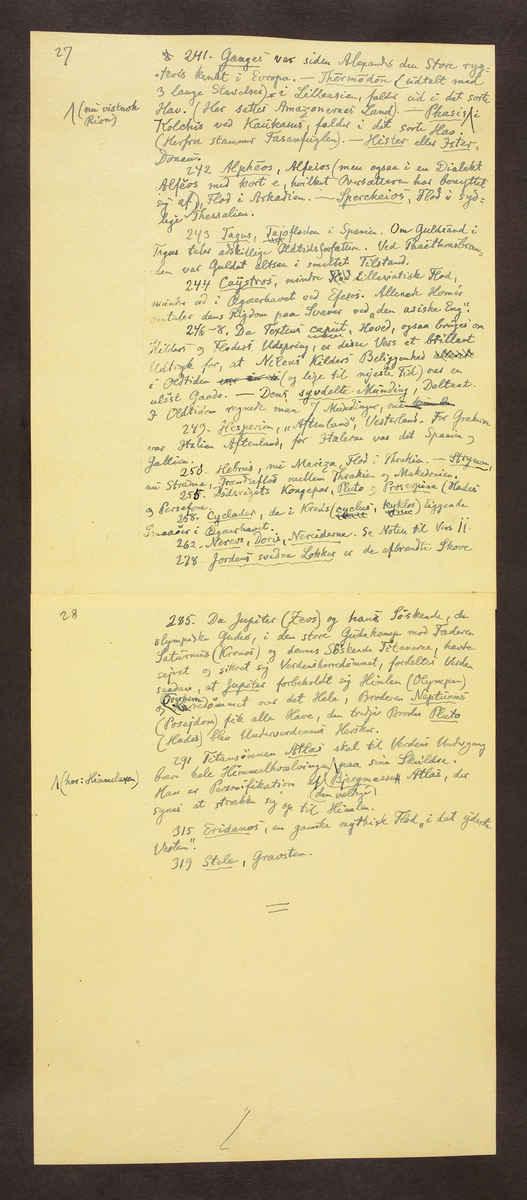 27
241. Ganges var siden Alexander den Store ryg-
tevis kendt i Evropa. — Thermodon (udtalt med
3 lange Stavelser) i Lilleasien, falder ud i det sorte
Hav. (Her sattes Amazonernes Land). — Phasis i
(nu vistnok
Rion)
Kolchis ved Kaukasus, falder i det sorte Hav.
(Herfra stammer Fasanfuglen). — Hister eller Ister,
Donau.
242 Alphēos, Alfeios (men ogsaa i en Dialekt
Alfĕos med kort e, hvilket Oversætteren har benyttet
sig af), Flod i Arkadien. — Spercheios, Flod i syd-
lige Thessalien.
243 Tagus, Tajofloden i Spanien. Om Guldsand i
Tagus taler adskillige Oldtidsforfattere. Ved Phaëthonsbran-
den var Guldet altsaa i smeltet Tilstand.
244 Caÿstros, mindre lilleasiatisk Flod,
munder ud i Ægæerhavet ved Efesos. Allerede Homér
omtaler dens Rigdom paa Svaner ved „den asiske Eng".
246-8. Da Textens caput, Hoved, ogsaa bruges om
Kilders og Floders Udspring, er disse Vers et brillant
Udtryk for, at Nilens Kilders Beliggenhed
i Oldtiden (og lige til nyeste Tid) var en
uløst Gaade. — Dens syvdelte Munding, Deltaet.
I Oldtiden regnede man 7 Mundinger,
249. Hesperien, „Aftenland", Vesterland. For Grækerne
var Italien Aftenland, for Italerne var det Spanien og
Gallien.
250. Hebrus, nu Mariza, Flod i Thrakien. — Strymon,
nu Struma, Grændseflod mellem Thrakien og Makedonien.
255. Dødsrigets Kongepar, Pluto og Proserpina (Hades
og Persefone.
258. Cyclader, de i Kreds (cyclus, kyklos) liggende
Smaaøer i Ægæerhavet.
262. Nereus, Doris, Nereiderne. Se Noten til Vers 11.
278. Jordens svedne Lokker er de afbrændte Skove
28
285. Da Jupiter (Zeus) og hans Søskende, de
olympiske Guder, i den store Gudekamp mod Faderen
Saturnus (Kronos) og dennes Søskende Titanerne, havde
sejret og sikret sig Verdensherredømmet, fordeltes Verden
saadan, at Jupiter forbeholdt sig Himlen (Olympen)
og Overherredømmet over det Hele, Broderen Neptunus
(Posejdon) fik alle Have, den tredje Broder Pluto
(Hades) blev Underverdenens Hersker.
291 Titansønnen Atlas skal til Verdens Undergang
(her: Himmelaxen)
bære hele Himmelhvælvingen paa sine Skuldre.
Han er Personifikation af Bjergmassen Atlas, der
(den vældige)
synes at strække sig op til Himlen.
315 Eridanos, en ganske mythisk Flod „i det yderste
Vesten".
319 Stele, Gravsten.